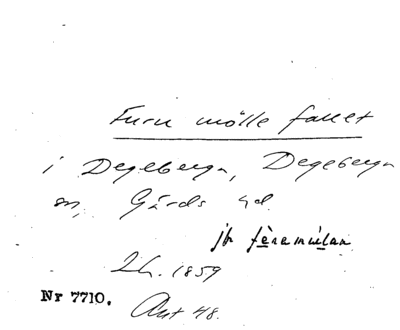 Furu mölle fallet
i Degeberga, Degeberga
sn, Gärds hd.
jfr fèremụ́lan
Lh. 1859
Nr 7710.
Ant 48.